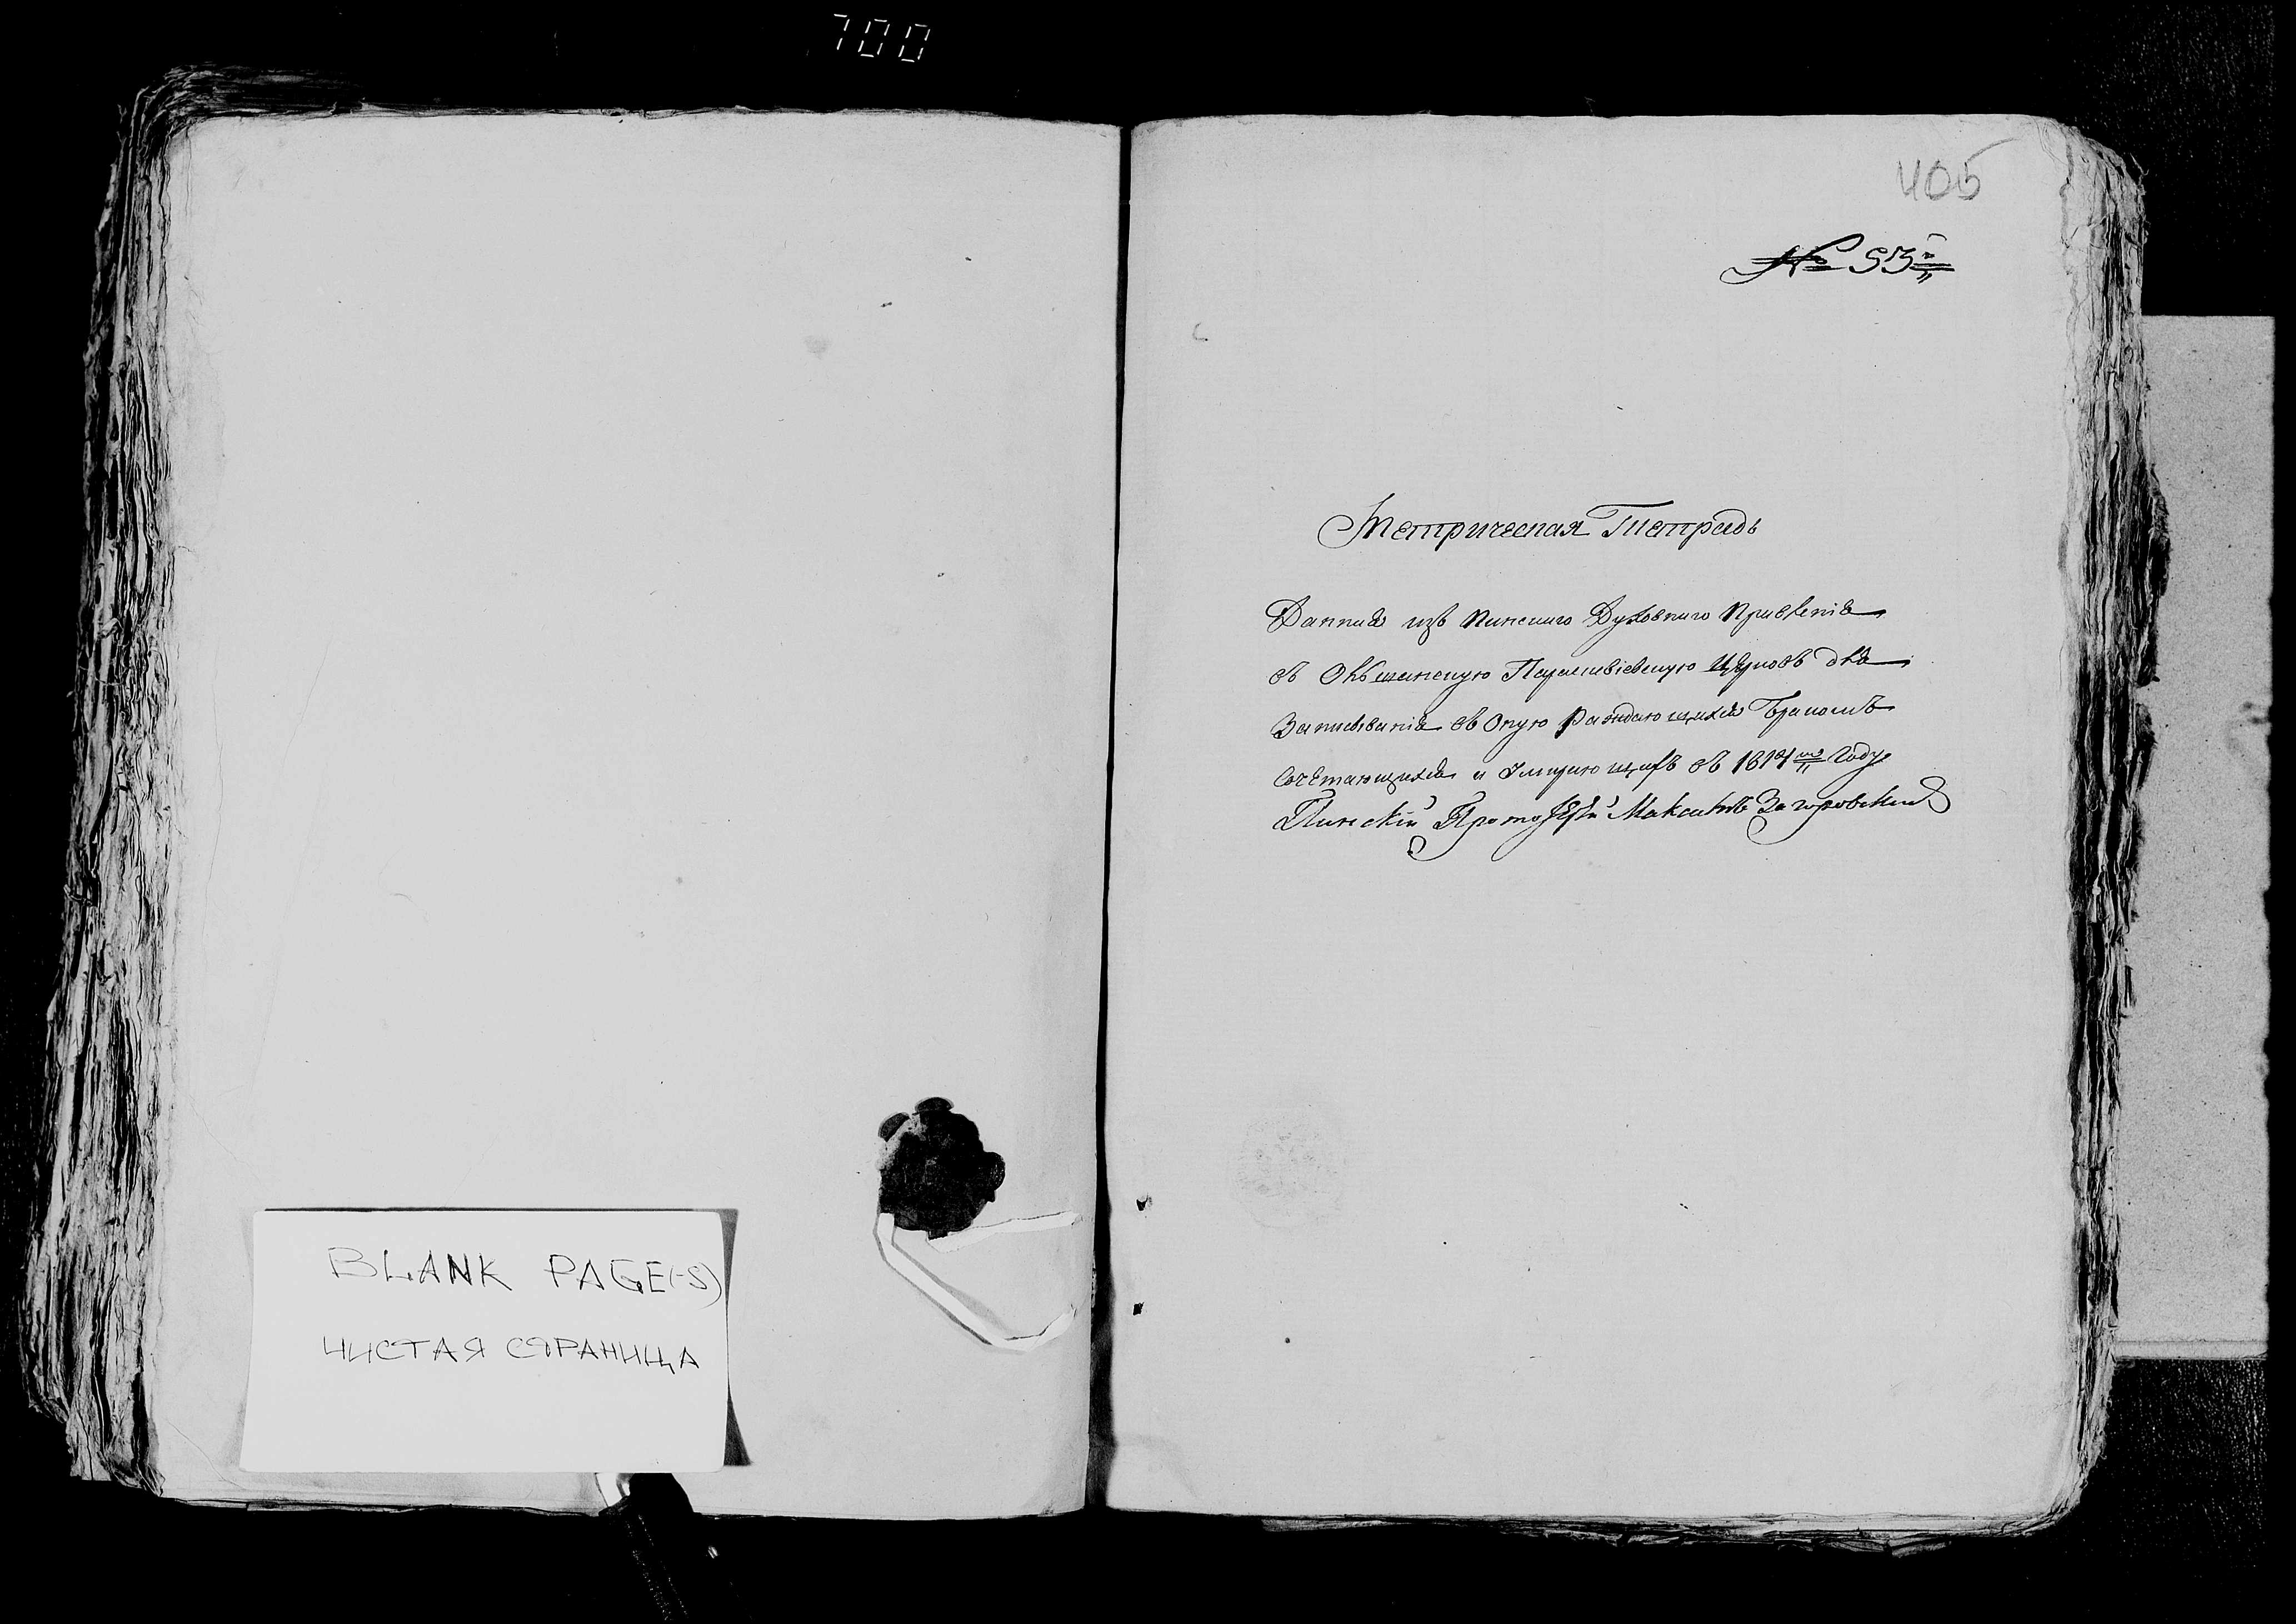 700
405
№ 53й
Метрическая Тетрадь
Данная изъ Пинскаго Духовнаго Правленія
въ Парасковіевскую Церковь для
Записыванія въ Оную Раждающихся Бракомъ
Сочетающихся и Умирающихъ въ году
Пинскій Протоіерей Максимъ Загоровскій
BLANK PAGE(-S)
ЧИСТАЯ СТРАНИЦА